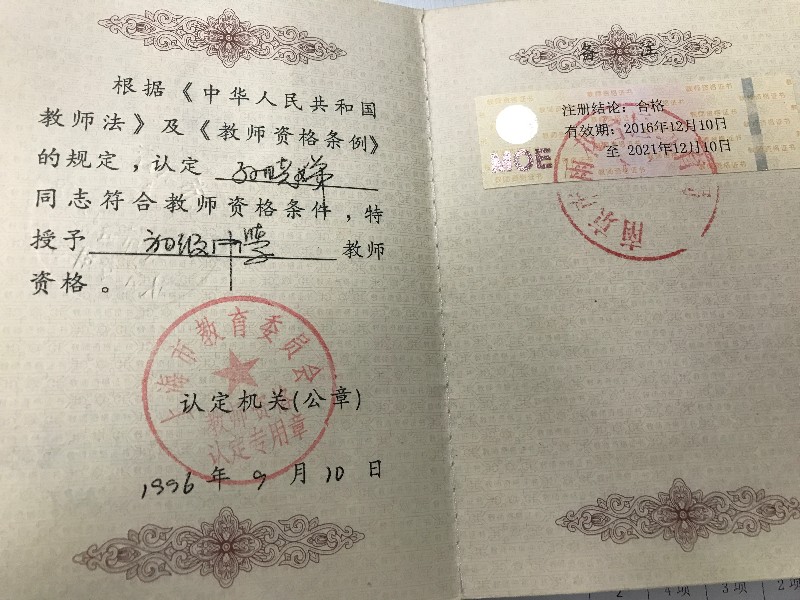 根据《中华人民共和国
教师法》及《教师资格条例》
的规定，认定 孙晓娣
同志符合教师资格条件，特
授予 初级中学 教师
资格。
上海市教育委员会
教师资格
认定专用章
认定机关(公章)
1996年9月10日
备注
注册结论：合格
有效期：2016年12月10日
至 2021年12月10日
MOE
南京
4项
3项
2项
2